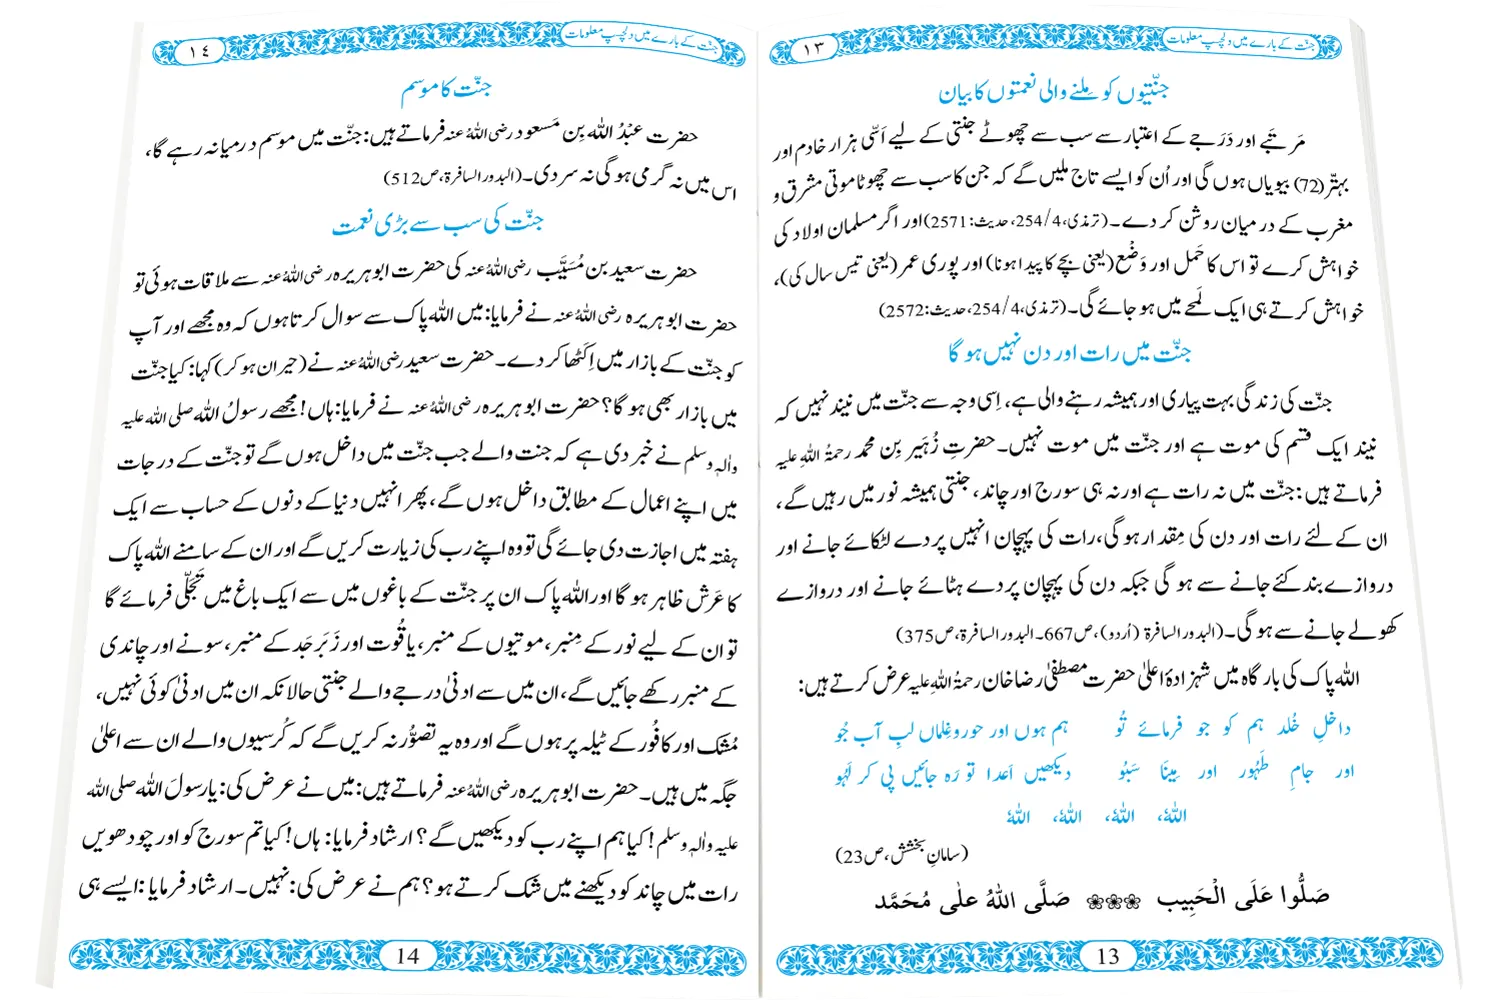 جنّت کے بارے میں دلچسپ معلومات
١٣
جنّتیوں کو مِلنے والی نعمتوں کا بیان
مَرتَبے اور دَرَجے کے اعتبار سے سب سے چھوٹے جنتی کے لیے اَسّی ہزار خادم اور
بہتّر (72) بیویاں ہوں گی اور اُن کو ایسے تاج ملیں گے کہ جن کا سب سے چھوٹا موتی مشرق و
مغرب کے درمیان روشن کر دے۔ (ترمذی، 4/254، حدیث: 2571) اور اگر مسلمان اولاد کی
خواہش کرے تو اس کا حَمل اور وَضْع (یعنی بچے کا پیدا ہونا) اور پوری عمر (یعنی تیس سال کی)،
خواہش کرتے ہی ایک لَمحے میں ہو جائے گی۔ (ترمذی، 4/254، حدیث: 2572)
جنّت میں رات اور دن نہیں ہو گا
جنّت کی زندگی بہت پیاری اور ہمیشہ رہنے والی ہے، اِسی وجہ سے جنّت میں نیند نہیں کہ
نیند ایک قسم کی موت ہے اور جنّت میں موت نہیں۔ حضرتِ زُہَیر بِن محمد رحمۃُ اللہِ علیہ
فرماتے ہیں: جنّت میں نہ رات ہے اور نہ ہی سورج اور چاند، جنتی ہمیشہ نور میں رہیں گے،
ان کے لئے رات اور دن کی مِقدار ہو گی، رات کی پہچان انہیں پردے لٹکائے جانے اور
دروازے بند کئے جانے سے ہو گی جبکہ دن کی پہچان پردے ہٹائے جانے اور دروازے
کھولے جانے سے ہو گی۔ (البدور السافرۃ (اُردو)، ص667۔ البدور السافرۃ، ص375)
اللہ پاک کی بارگاہ میں شہزادۂ اعلیٰ حضرت مصطفٰی رضا خان رحمۃُ اللہِ علیہ عرض کرتے ہیں:
داخلِ خُلد ہم کو جو فرمائے تُو ہم ہوں اور حور و غِلماں لبِ آب جُو
اور جامِ طَہُور اور مِینَا سَبُو دیکھیں اَعدا تو رَہ جائیں پی کر لَہُو
اللہُ، اللہُ، اللہُ، اللہُ
(سامانِ بخشش، ص23)
صَلُّوا عَلَی الْحَبِیب صَلَّی اللہُ علٰی مُحَمَّد
13
جنّت کے بارے میں دلچسپ معلومات
١٤
جنّت کا موسم
حضرت عبْدُ اللہ بِن مَسعود رضی اللہُ عنہ فرماتے ہیں: جنّت میں موسم درمیانہ رہے گا،
اس میں نہ گرمی ہو گی نہ سردی۔ (البدور السافرۃ، ص512)
جنّت کی سب سے بڑی نعمت
حضرت سعید بن مُسَیَّب رضی اللہُ عنہ کی حضرت ابو ہریرہ رضی اللہُ عنہ سے ملاقات ہوئی تو
حضرت ابو ہریرہ رضی اللہُ عنہ نے فرمایا: میں اللہ پاک سے سوال کرتا ہوں کہ وہ مجھے اور آپ
کو جنّت کے بازار میں اِکَٹھا کر دے۔ حضرت سعید رضی اللہُ عنہ نے (حیران ہو کر) کہا: کیا جنّت
میں بازار بھی ہو گا؟ حضرت ابو ہریرہ رضی اللہُ عنہ نے فرمایا: ہاں! مجھے رسولُ اللہ صلی اللہ علیہ
واٰلہٖ وسلم نے خبر دی ہے کہ جنت والے جب جنّت میں داخل ہوں گے تو جنّت کے درجات
میں اپنے اعمال کے مطابق داخل ہوں گے، پھر انہیں دنیا کے دنوں کے حساب سے ایک
ہفتہ میں اجازت دی جائے گی تو وہ اپنے رب کی زیارت کریں گے اور ان کے سامنے اللہ پاک
کا عَرْش ظاہر ہو گا اور اللہ پاک ان پر جنّت کے باغوں میں سے ایک باغ میں تَجَلّی فرمائے گا
تو ان کے لیے نور کے مِنبر، موتیوں کے منبر، یاقُوت اور زَبَرجَد کے منبر، سونے اور چاندی
کے منبر رکھے جائیں گے، ان میں سے ادنیٰ درجے والے جنتی حالانکہ ان میں ادنیٰ کوئی نہیں،
مُشک اور کافُور کے ٹیلہ پر ہوں گے اور وہ یہ تصوُّر نہ کریں گے کہ کُرسیوں والے ان سے اعلیٰ
جگہ میں ہیں۔ حضرت ابو ہریرہ رضی اللہُ عنہ فرماتے ہیں: میں نے عرض کی: یا رسولَ اللہ صلی اللہ
علیہ واٰلہٖ وسلم! کیا ہم اپنے رب کو دیکھیں گے؟ ارشاد فرمایا: ہاں! کیا تم سورج کو اور چودھویں
رات میں چاند کو دیکھنے میں شک کرتے ہو؟ ہم نے عرض کی: نہیں۔ ارشاد فرمایا: ایسے ہی
14